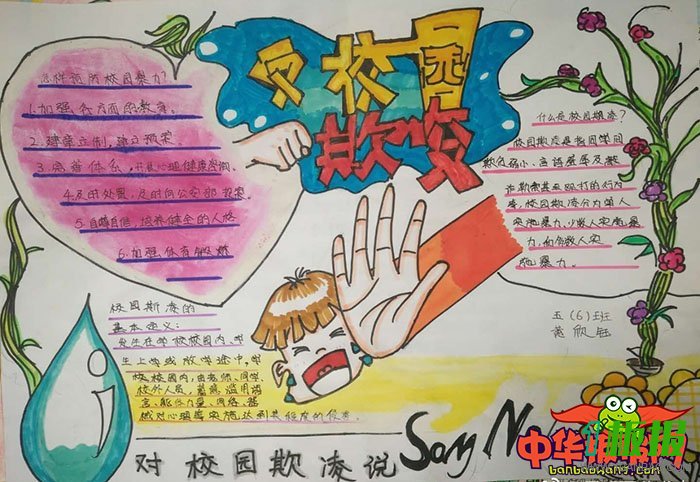 反校园
欺凌
怎样预防校园暴力?
1.加强各方面的教育。
2.建章立制,建立预案
3.完善体系,开展心理健康咨询。
4.及时处置,及时向公安部门报案。
5.自尊自信,培养健全的人格
6.加强体育锻炼
什么是校园欺凌?
校园欺凌是指同学间
欺负弱小、言语羞辱及敲
诈勒索甚至殴打的行为
等,校园欺凌分为单人
实施暴力,少数人实施暴
力,和多数人实
施暴力。
五(6)班
校园欺凌的
基本定义:
发生在学校校园内、学
生上学或放学途中,学
校校园内,由老师、同学、
校外人员,蓄意滥用语
言、躯体力量、网络、器
械对心理等实施达到某种程度的侵害。
对校园欺凌说 Say N
中华
趣报
banbaowang.com